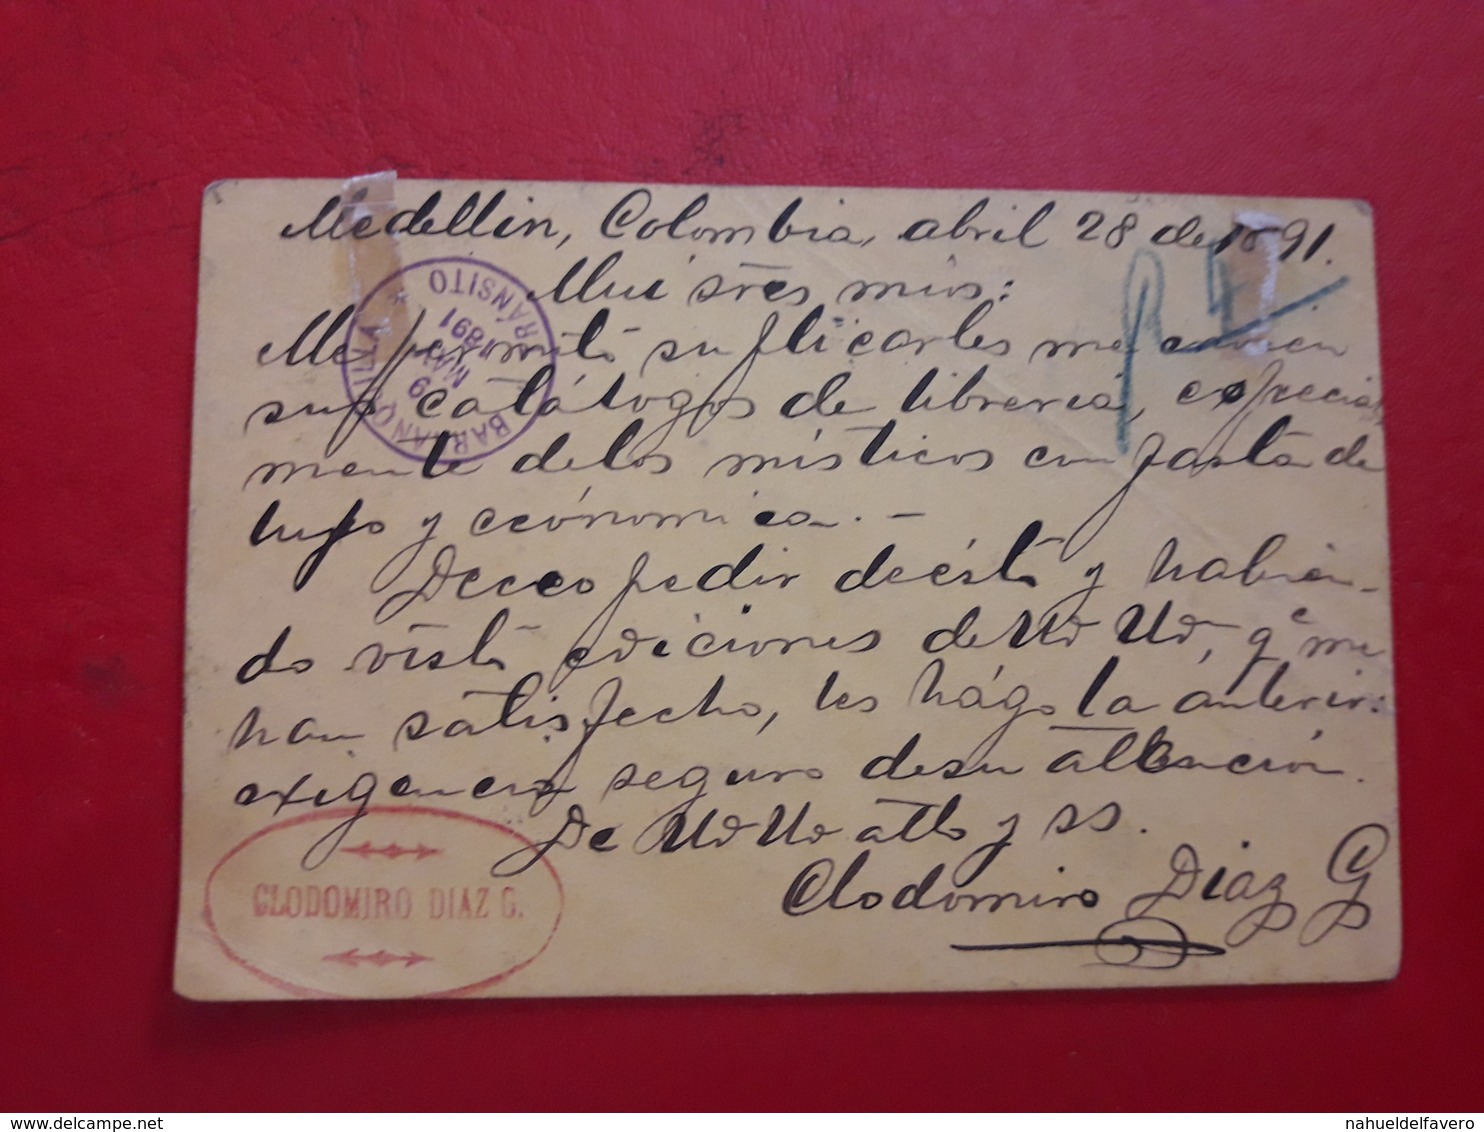 Medellin, Colombia, abril 28 de 1891.
Mui sres mios:
Me permito suplicarles me envien
sus catálogos de libreria, especial
mente delos místicos con pasta de
lujo y económica.-
Deceo pedir deésto y habien-
do visto ediciones de Ud Ud, qe me
han satisfecho, les hágo la ánterir:
exigencia seguro desu attención.
De Ud Ud atto y ss.
Clodomiro Diaz G
CLODOMIRO DIAZ G.
BARRANQUILLA * TRÁNSITO
9
MAY
1891
nahueldelfavero